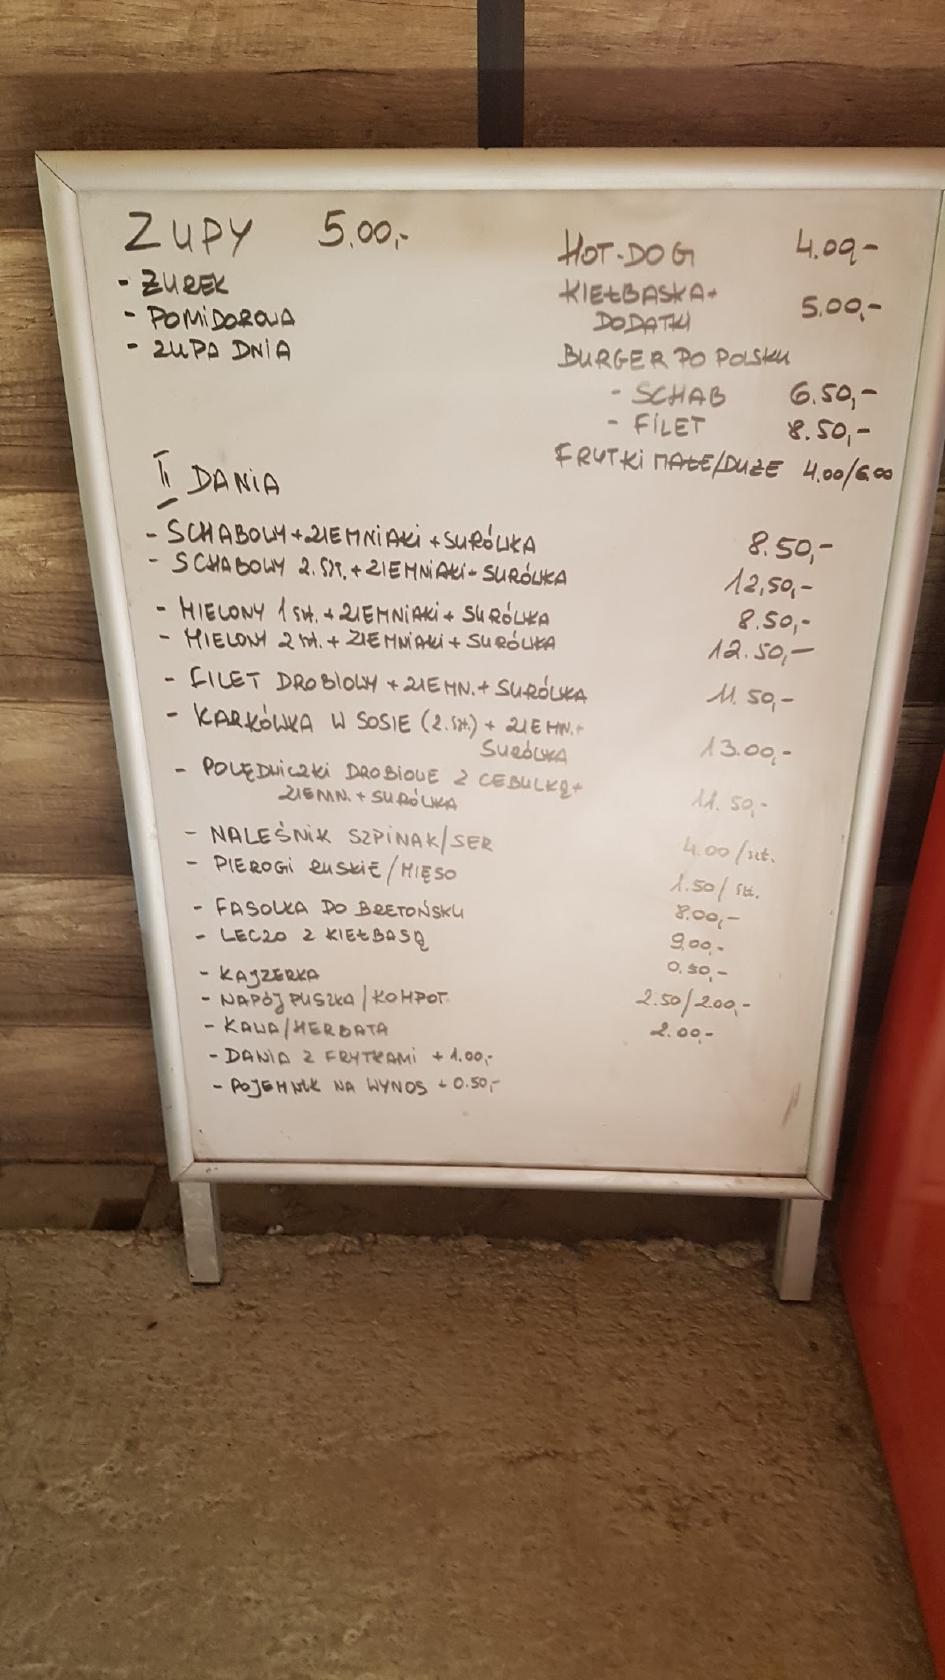 ZUPY 5.00,-
- ŻUREK
- POMIDOROWA
- ZUPA DNIA
HOT-DOG 4.00,-
KIEŁBASKA+
DODATKI 5.00,-
BURGER PO POLSKU
- SCHAB 6.50,-
- FILET 8.50,-
FRYTKI MAŁE/DUŻE 4.00/6.00
II DANIA
- SCHABOWY+ZIEMNIAKI+SURÓWKA 8.50,-
- SCHABOWY 2.SZT.+ZIEMNIAKI+SURÓWKA 12,50,-
- MIELONY 1 SZT.+ZIEMNIAKI+SURÓWKA 8.50,-
- MIELONY 2 SZT.+ZIEMNIAKI+SURÓWKA 12.50,-
- FILET DROBIOWY+ZIEMN.+SURÓWKA 11.50,-
- KARKÓWKA W SOSIE (2.SZT.)+ZIEMN.+
SURÓWKA 13.00,-
- POLĘDWICZKI DROBIOWE Z CEBULKĄ+
ZIEMN.+SURÓWKA 11.50,-
- NALEŚNIK SZPINAK/SER 4.00/szt.
- PIEROGI RUSKIE/MIĘSO 1.50/szt.
- FASOLKA PO BRETOŃSKU 8.00,-
- LECZO Z KIEŁBASĄ 9.00,-
- KAJZERKA 0.50,-
- NAPÓJ PUSZKA/KOMPOT 2.50/2.00,-
- KAWA/HERBATA 2.00,-
- DANIA Z FRYTKAMI +1.00,-
- POJEMNIK NA WYNOS +0.50,-